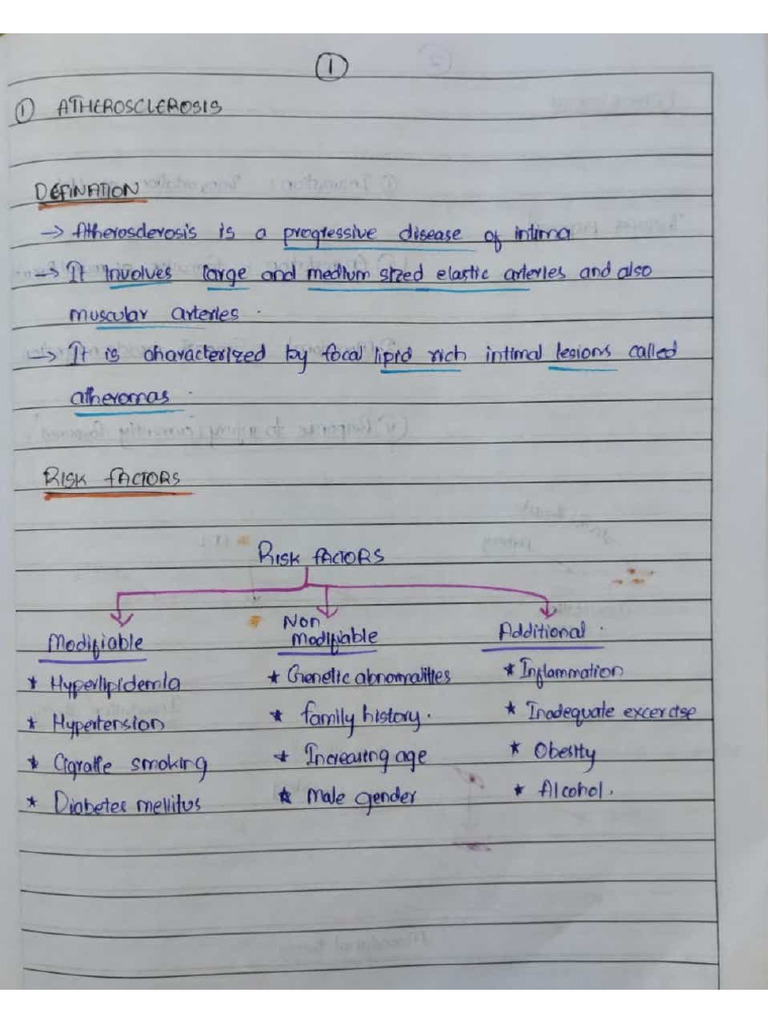 1
① ATHEROSCLEROSIS
DEFINATION
→ Atherosclerosis is a progressive disease of intima
→ It involves large and medium sized elastic arteries and also
muscular arteries.
→ It is characterized by focal lipid rich intimal lesions called
atheromas.
RISK FACTORS
RISK FACTORS
Modifiable
* Hyperlipidemia
* Hypertension
* Cigratte smoking
* Diabetes mellitus
Non
Modifiable
* Genetic abnormalities
* family history.
* Increasing age
* Male gender
Additional.
* Inflammation
* Inadequate excercise
* Obesity
* Alcohol.